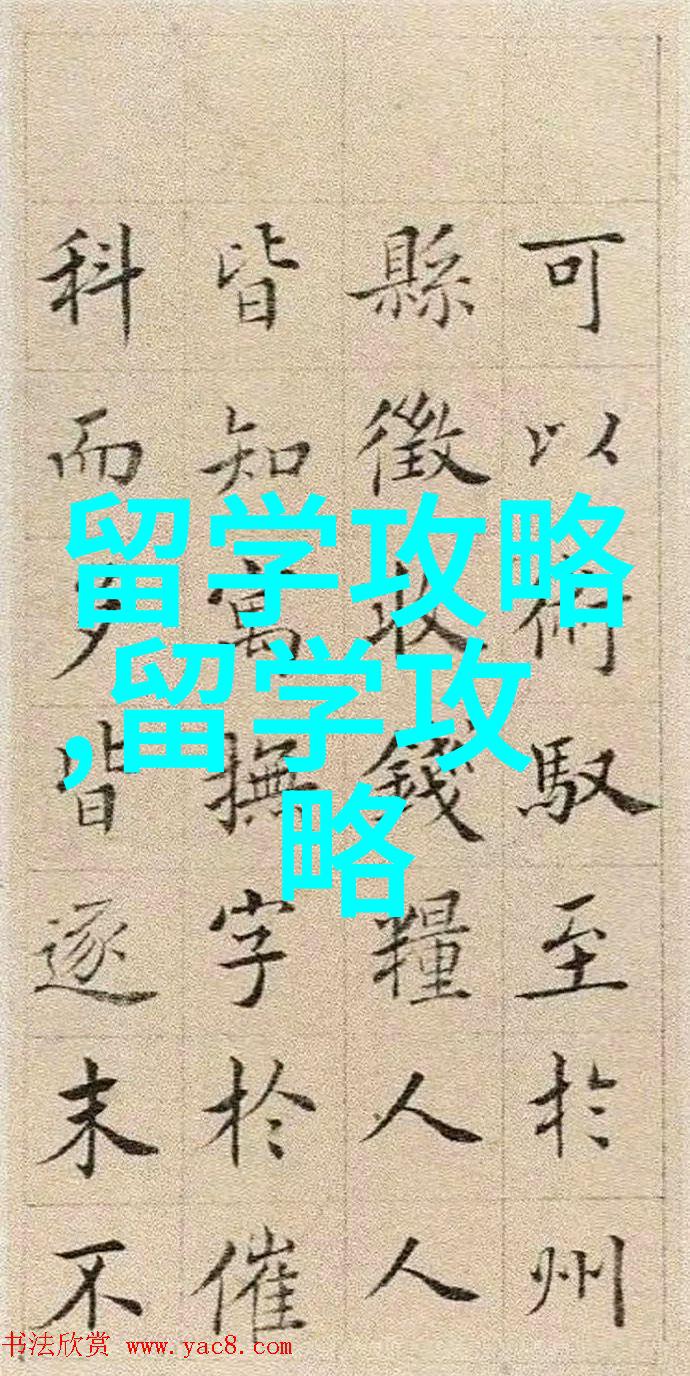 可以術馭至於州
縣徵收錢糧人人
皆知寓撫字於催
科而多皆逐末不
留学攻略
,留学攻
略
书法欣赏 www.yac8.com